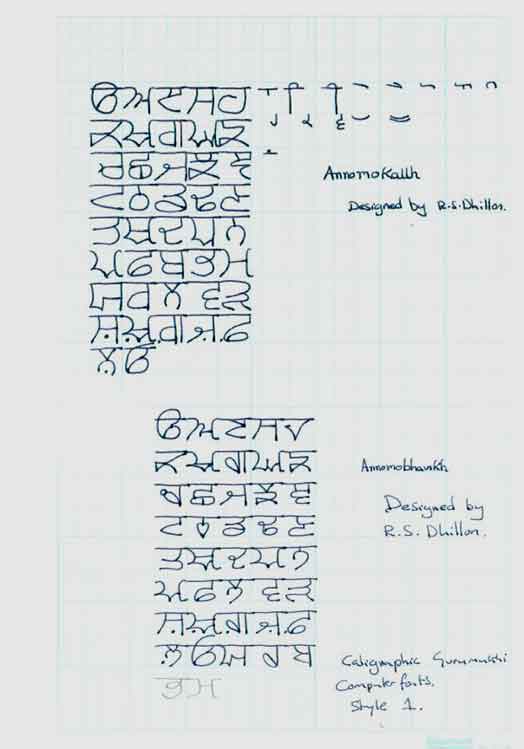 ੳਅੲਸਹ
ਕਖਗਘਙ
ਚਛਜਝਞ
ਟਠਡਢਣ
ਤਥਦਧਨ
ਪਫਬਭਮ
ਯਰਲ ਵੜ
ਸ਼ਖ਼ਗ਼ਜ਼ਫ਼
ਲ਼ਓ
Designed by R.S.Dhillon.
ੳਅੲਸਹ
ਕਖਗਘਙ
ਚਛਜਝਞ
ਟਠਡਢਣ
ਤਥਦਧਨ
ਪਫਲ ਵੜ
ਸ਼ਖ਼ਗ਼ਜ਼ਫ਼
ਲ਼ ਓਯ ਰ ਬ
ਭਮ
Designed by
R.S. Dhillon.
Caligraphic Gurumukhi
Computer fonts.
Style 1.